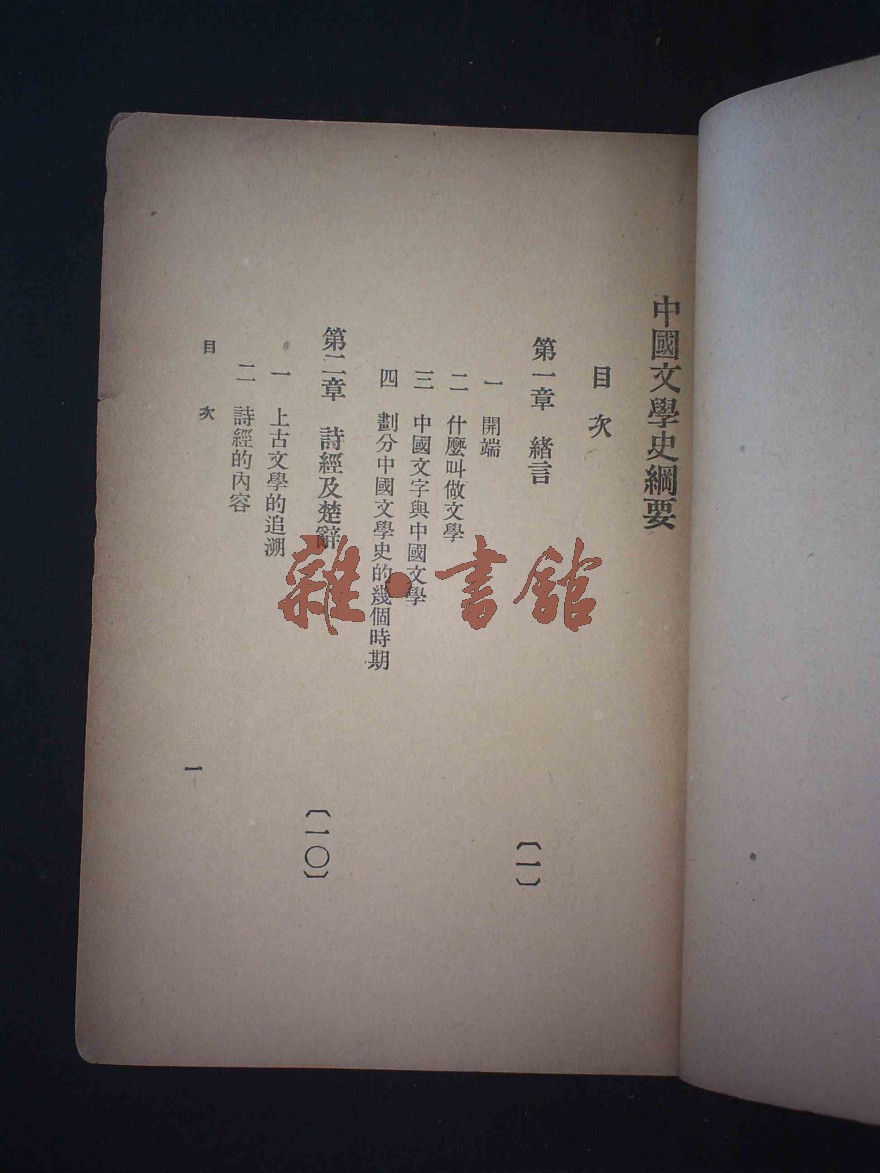 中國文學史綱要
目次
第一章　緒言
〔一〕
一　開端
二　什麼叫做文學
三　中國文字與中國文學
四　劃分中國文學史的幾個時期
第二章　詩經及楚辭
〔一〇〕
一　上古文學的追溯
二　詩經的內容
目次
一
雜·書館